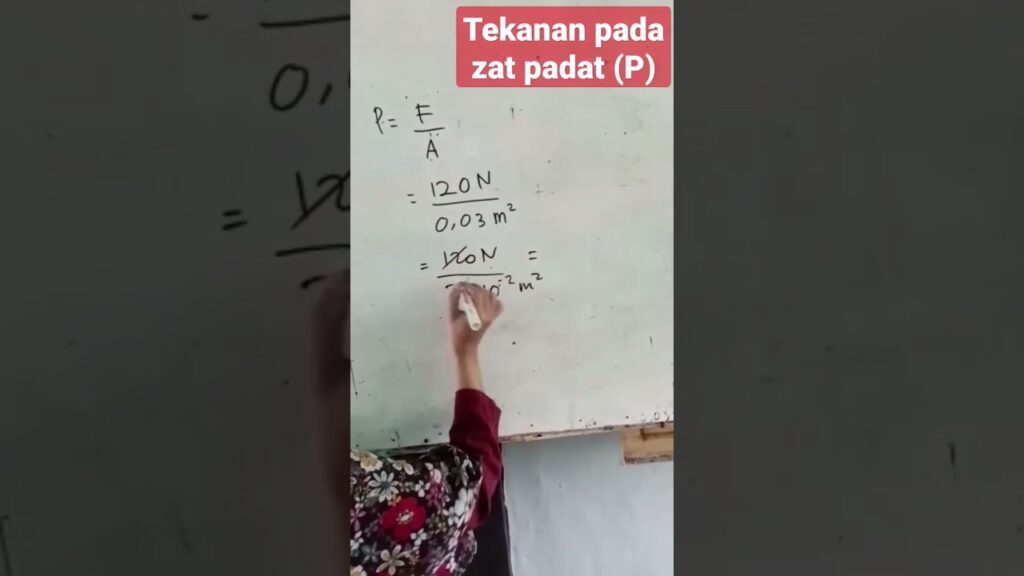 Tekanan pada
zat padat (P)
P = F/A
= 120 N/0,03 m²
= 120 N/ 10⁻² m² =